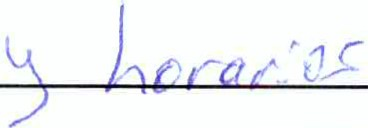 y horarios